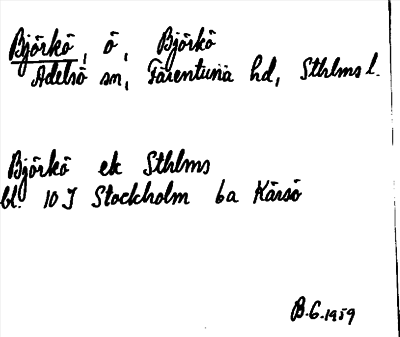 Björkö, ö, Björkö
Adelsö sn, Färentuna hd, Sthlms l.
Björkö ek Sthlms
bl. 10 J Stockholm 6a Kärsö
B.G. 1959